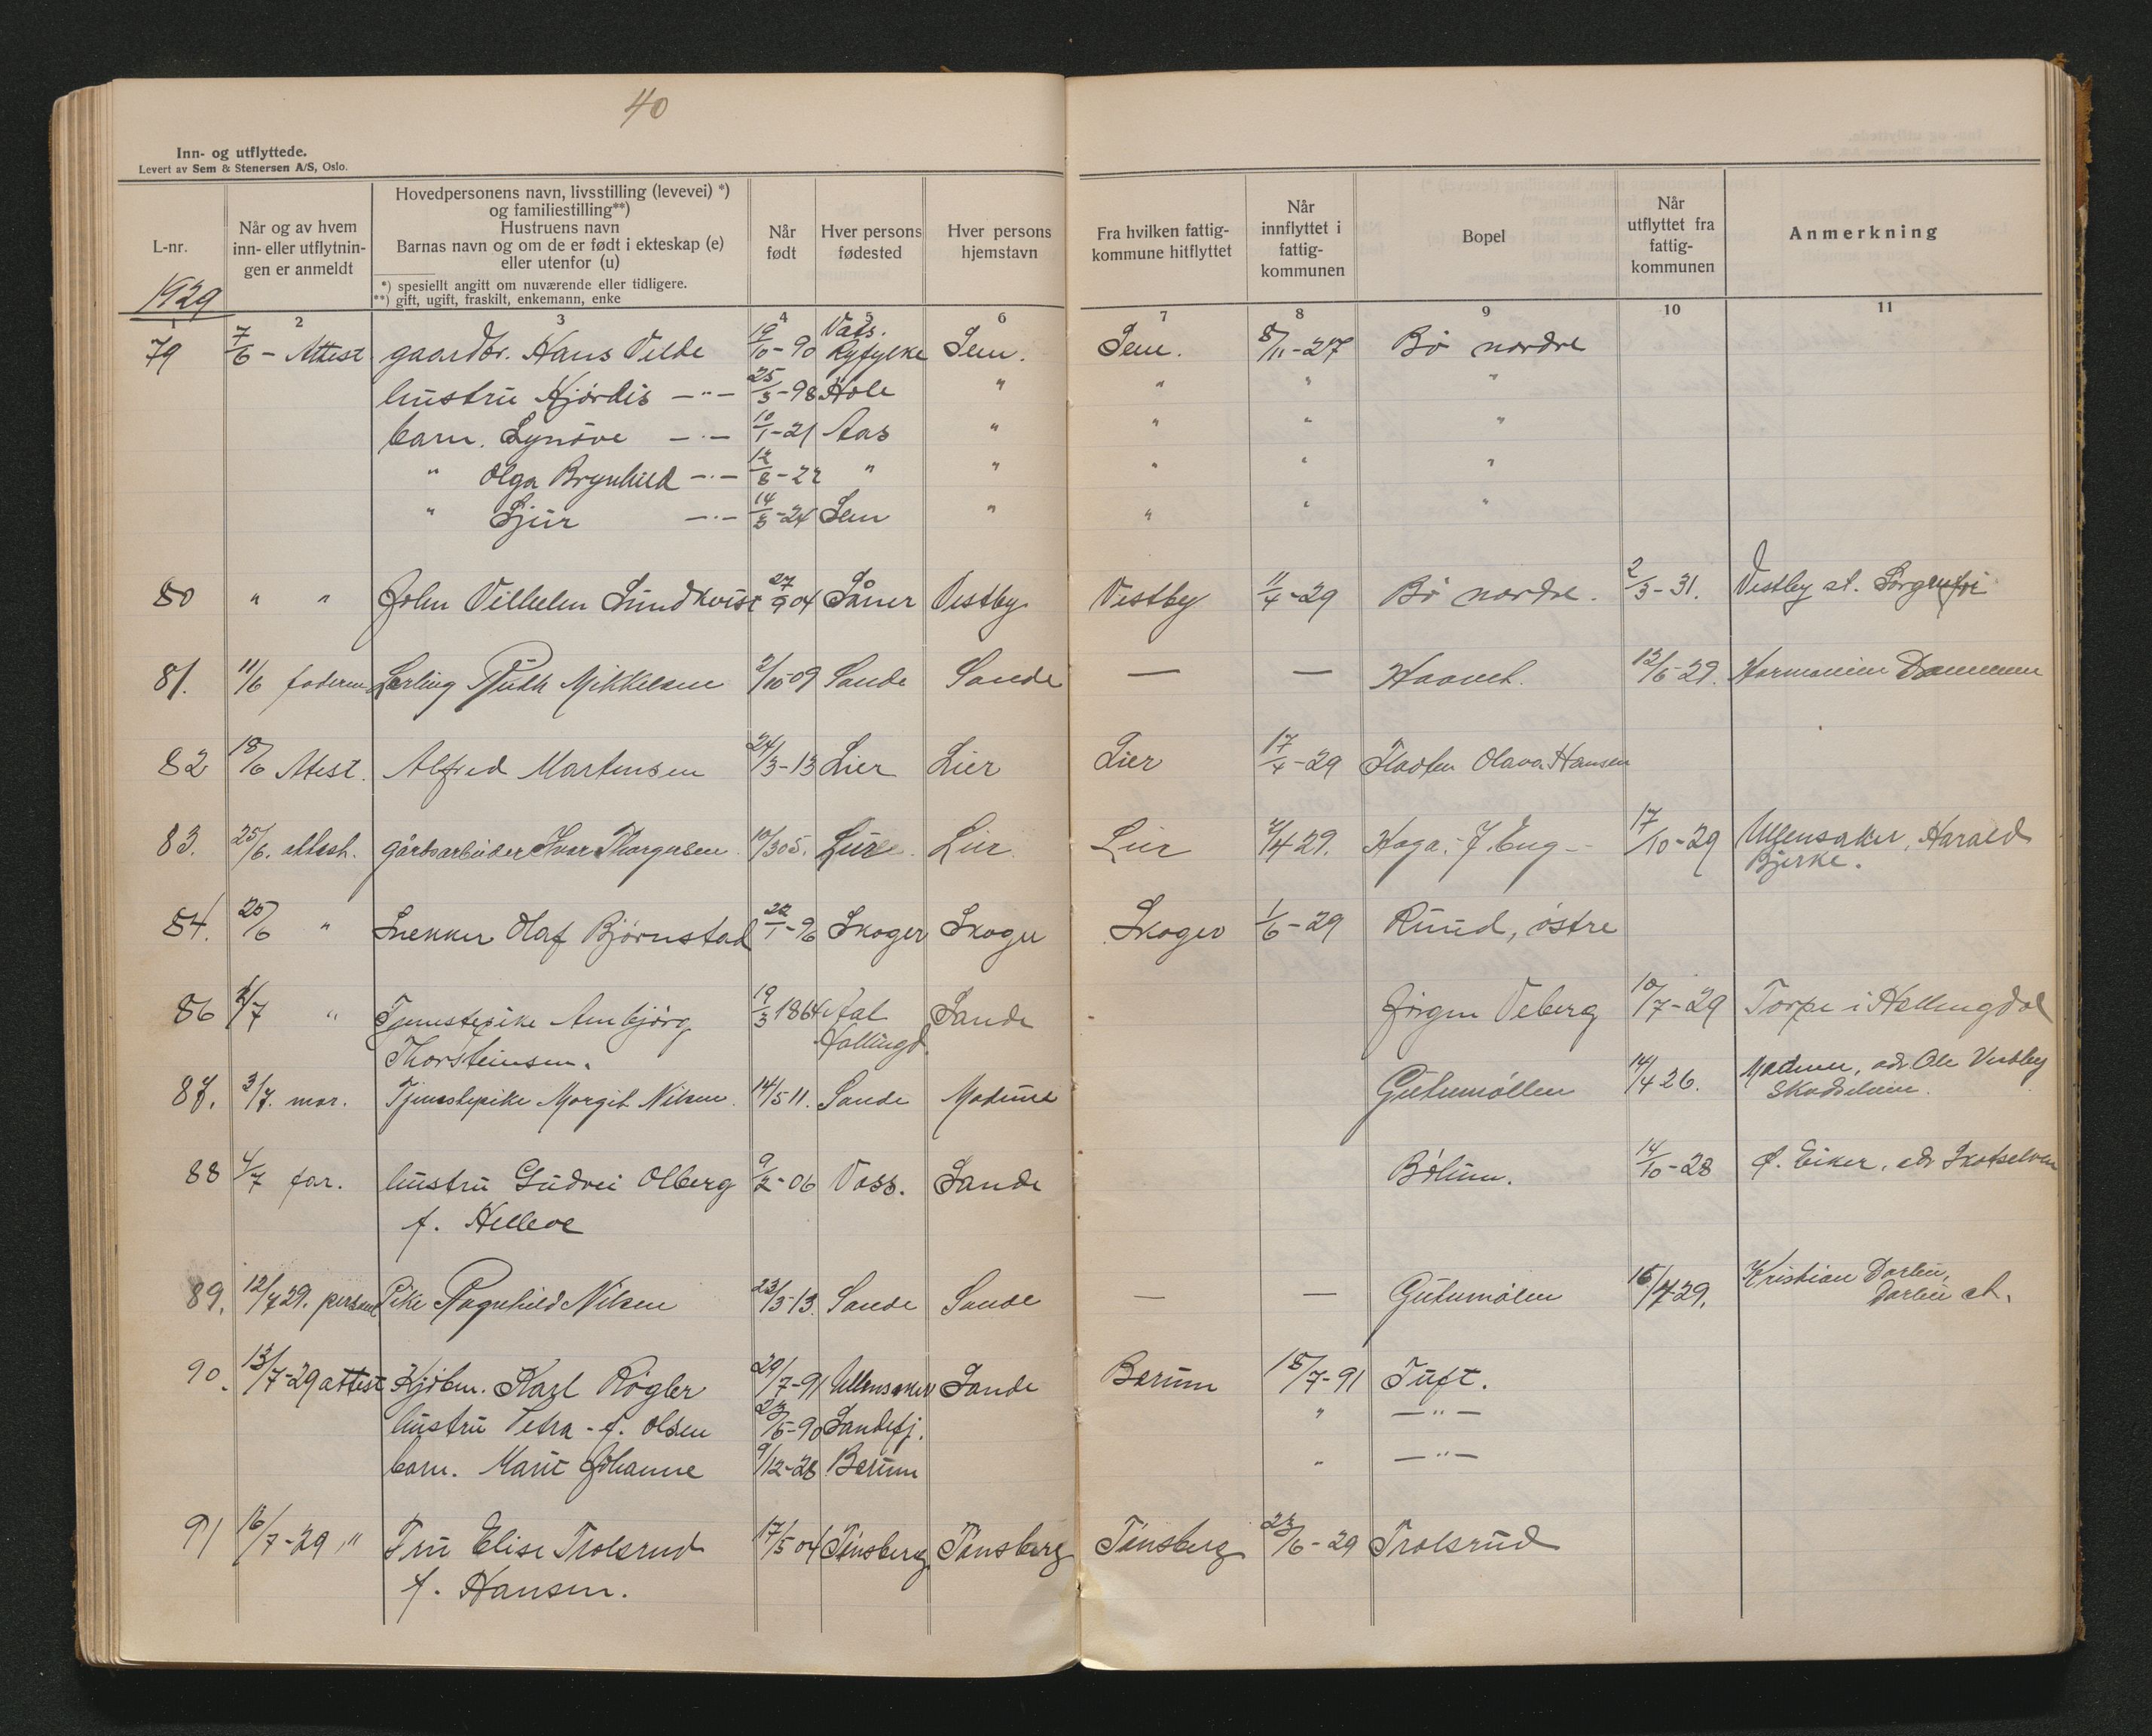 40
Inn- og utflyttede.
Levert av Sem & Stenersen A/S, Oslo.
L-nr.
1929
Når og av hvem
inn- eller utflytnin-
gen er anmeldt
Hovedpersonens navn, livsstilling (levevei) *)
og familiestilling**)
Hustruens navn
Barnas navn og om de er født i ekteskap (e)
eller utenfor (u)
*) spesiellt angitt om nuværende eller tidligere.
**) gift, ugift, fraskilt, enkemann, enke
Når
født
Hver persons
fødested
Hver persons
hjemstavn
Fra hvilken fattig-
kommune hitflyttet
Når
innflyttet i
fattig-
kommunen
Bopel
Når
utflyttet fra
fattig-
kommunen
Anmerkning
1 2 3 4 5 6 7 8 9 10 11
79 7/6 - Attest gaardbr. Hans Velde 19/10-90 Vats. Ryfylke Sem. Sem. 8/11-27 Bø nordre
hustru Hjørdis —"— 25/3-98 Hole " " " "
barn. Synøve —"— 10/1-21 Aas " " " "
" Olga Brynhild —"— 12/8-22 " " " " "
" Sjur —"— 14/3-24 Sem " " " "
80 " " John Vilhelm Lundkvist 27/9 04 Såner Vestby Vestby 11/4-29 Bø nordre. 2/3-31. Vestby st. Sørgenfri
81. 11/6 faderen Ruth Mikkelsen 2/10-09 Sande Sande — — Haavet. 12/6-29. Harmonien Drammen
82 18/6 Attest. Alfred Martinsen 24/3-13 Lier Lier Lier 17/4-29 Olava Hansen
83. 25/6. attest. gårdsarbeider Ivar Thorgersen 10/3 05. Lier Lier Lier 2/4 29. Haga. J. Eng — 17/10-29 Ullensaker, Harald
Bjerke.
84. 25/6 " Snekker Olaf Bjørnstad 22/1-96 Skoger Skoger Skoger 1/6-29 Ruud, østre
86 2/7 " Tjenestepike Ambjørg 19/3 1864 Aal Sande Jørgen Veberg 10/7-29 Torpe i Hallingdal
Thorsteinsen. Hallingd.
87. 3/7. mor. Tjenestepike Margit Nilsen 14/5 11. Sande Modum Gutumøllen 14/4 26. Modum, adr Ole Vestby
Skodselven.
88 4/7 far. hustru Gudvei Olberg 9/2-06 Voss. Sande Bølum. 14/10-28 Ø. Eiker, adr Skotselven
f. Helleve
89. 12/7 29. personl Pike Ragnhild Nilsen 23/3-13. Sande Sande — — Gutumølen 15/7-29. Kristian Darbu,
Darbu st.
90. 13/7-29 attest Kjøbm. Karl Røgler 29/7-91 Ullensaker Sande Bærum 15/7-91 Tuft.
hustru Petra - f. Olsen 23/5-90 Sandefj. " —"—
barn. Marit Johanne 9/12-28 Bærum " —"—
91 16/7-29 " Fru Elise Trolsrud 17/5 04 Tønsberg Tønsberg Tønsberg 23/6-29 Trolsrud
f. Hansen.